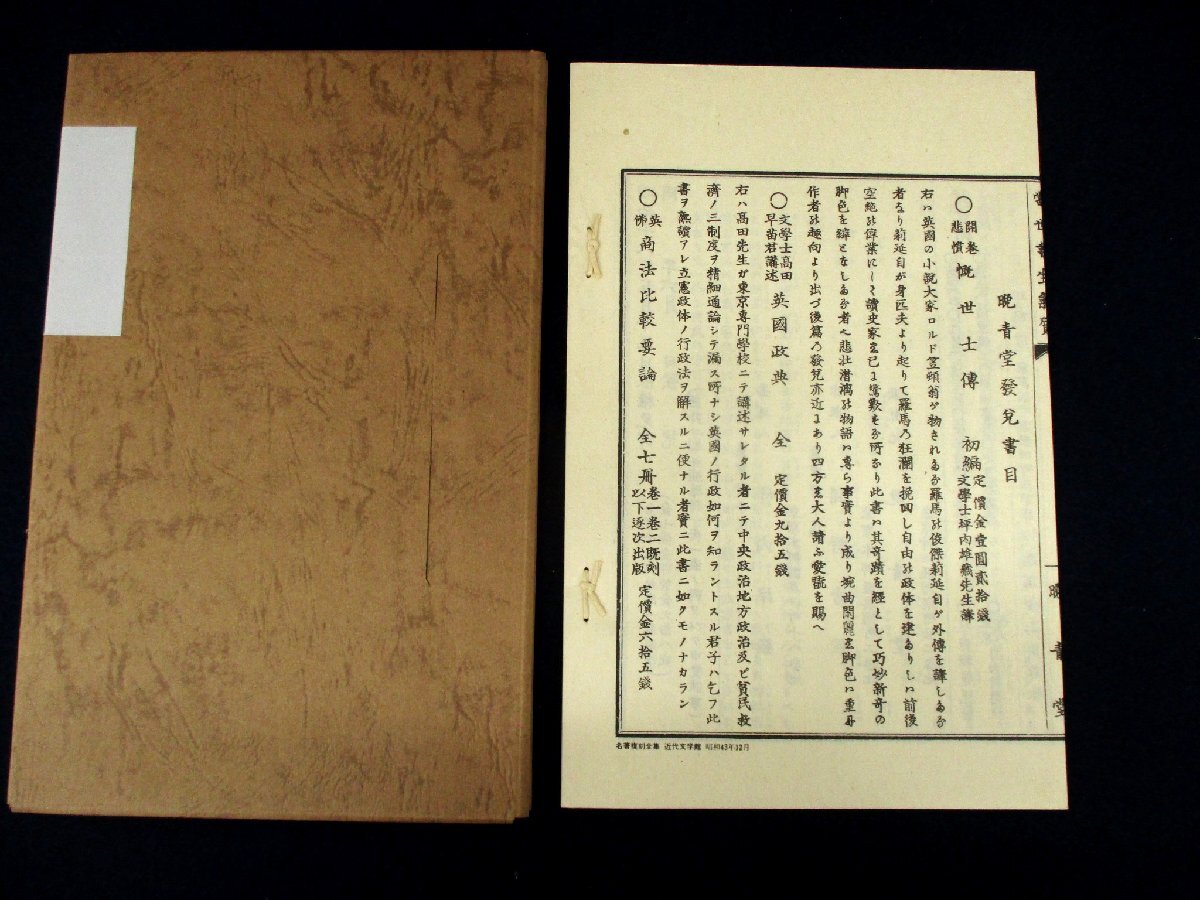 晩青堂發兌書目
○開巻悲憤 慨世士傳 初編 定價金壹圓貳拾錢 文學士坪内雄藏先生譯
右ハ英國の小説大家ロルド笠頓翁ゲ物されある羅馬の俊傑莉延自ゲ外傳を譯しある
者なり莉延自が身匹夫より起りて羅馬乃狂瀾を挽回し自由の政体を建ありしい前後
空絶の偉業にして讀史家も已に驚歎する所なり此書ハ其奇蹟を經として巧妙新奇の
脚色を緯となしある者
悲壮
の物語ハ専ら事實より成り婉曲
脚色ハ重に
作者の趣向より出づ後篇乃發兌亦近にあり四方大人請ふ愛覧を賜へ
○文學士高田早苗君講述 英國政典 全 定價金九拾五錢
右ハ高田先生ガ東京專門學校ニテ講述サレタル者ニテ中央政治地方政治及ビ貧民救
濟ノ三制度ヲ精細通論シテ漏ス所ナシ英國ノ行政如何ヲ知ラントスル君子ハ乞フ此
書ヲ熟讀アレ立憲政体ノ行政法ヲ解スルニ便ナル者實ニ此書ニ如クモノナカラン
○英佛 商法比較要論 全七冊 巻一巻二既刻 以下逐次出版 定價金六拾五錢
名著複刻全集 近代文学館 昭和43年12月